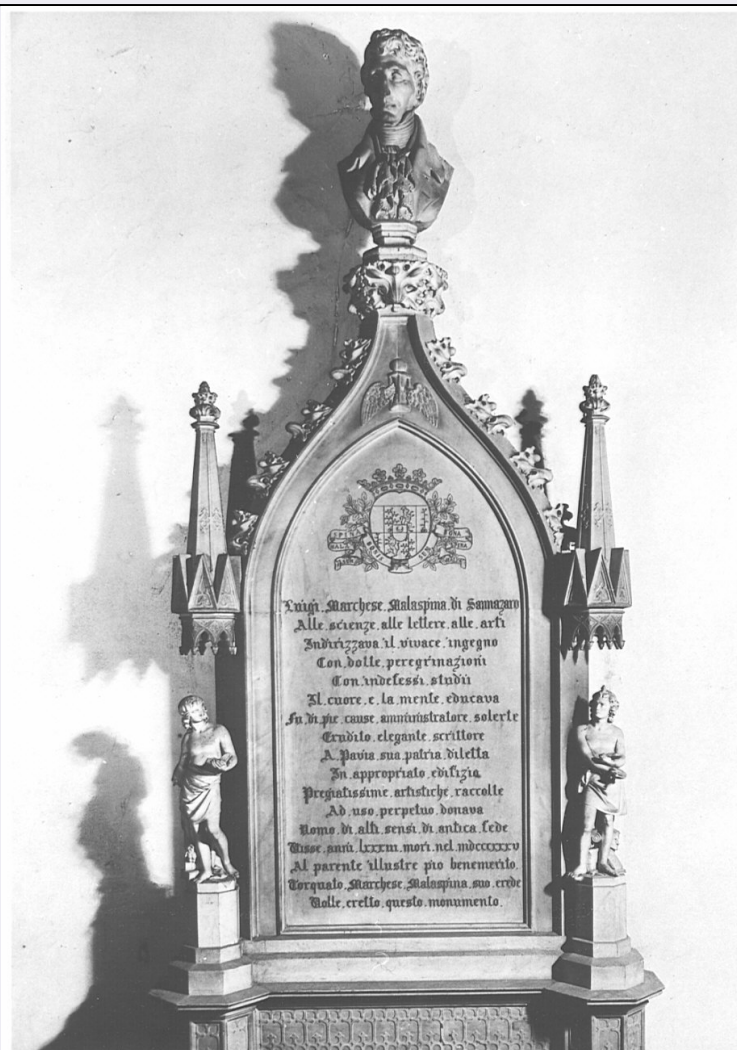 Luigi. Marchese. Malaspina. di Sannazaro
Alle. scienze. alle lettere. alle. arti
Indirizzava. il. vivace. ingegno
Con. dotte. peregrinazioni
Con. indefessi. studii
Il. cuore. e. la mente. educava
Fu. di. pie. cause. amministratore. solerte
Erudito. elegante. scrittore
A. Pavia. sua. patria. diletta
In. appropriato. edifizio
Pregiatissime. artistiche. raccolte
Ad. uso. perpetuo. donava
Uomo. di. alti. sensi. di. antica. fede
Visse. anni. lxxxiii. morì. nel. mdcccxxxv
Al parente illustre pio benemerito.
Torquato. Marchese. Malaspina. suo. erede
Volle. eretto. questo. monumento.